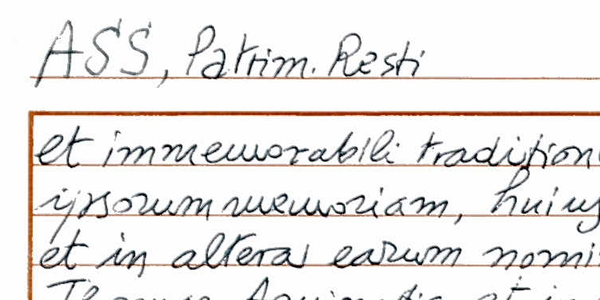 ASS, Patrim. Resti
et immemorabili tradition
ipsorum memoriam, huius
et in altera earum nomi